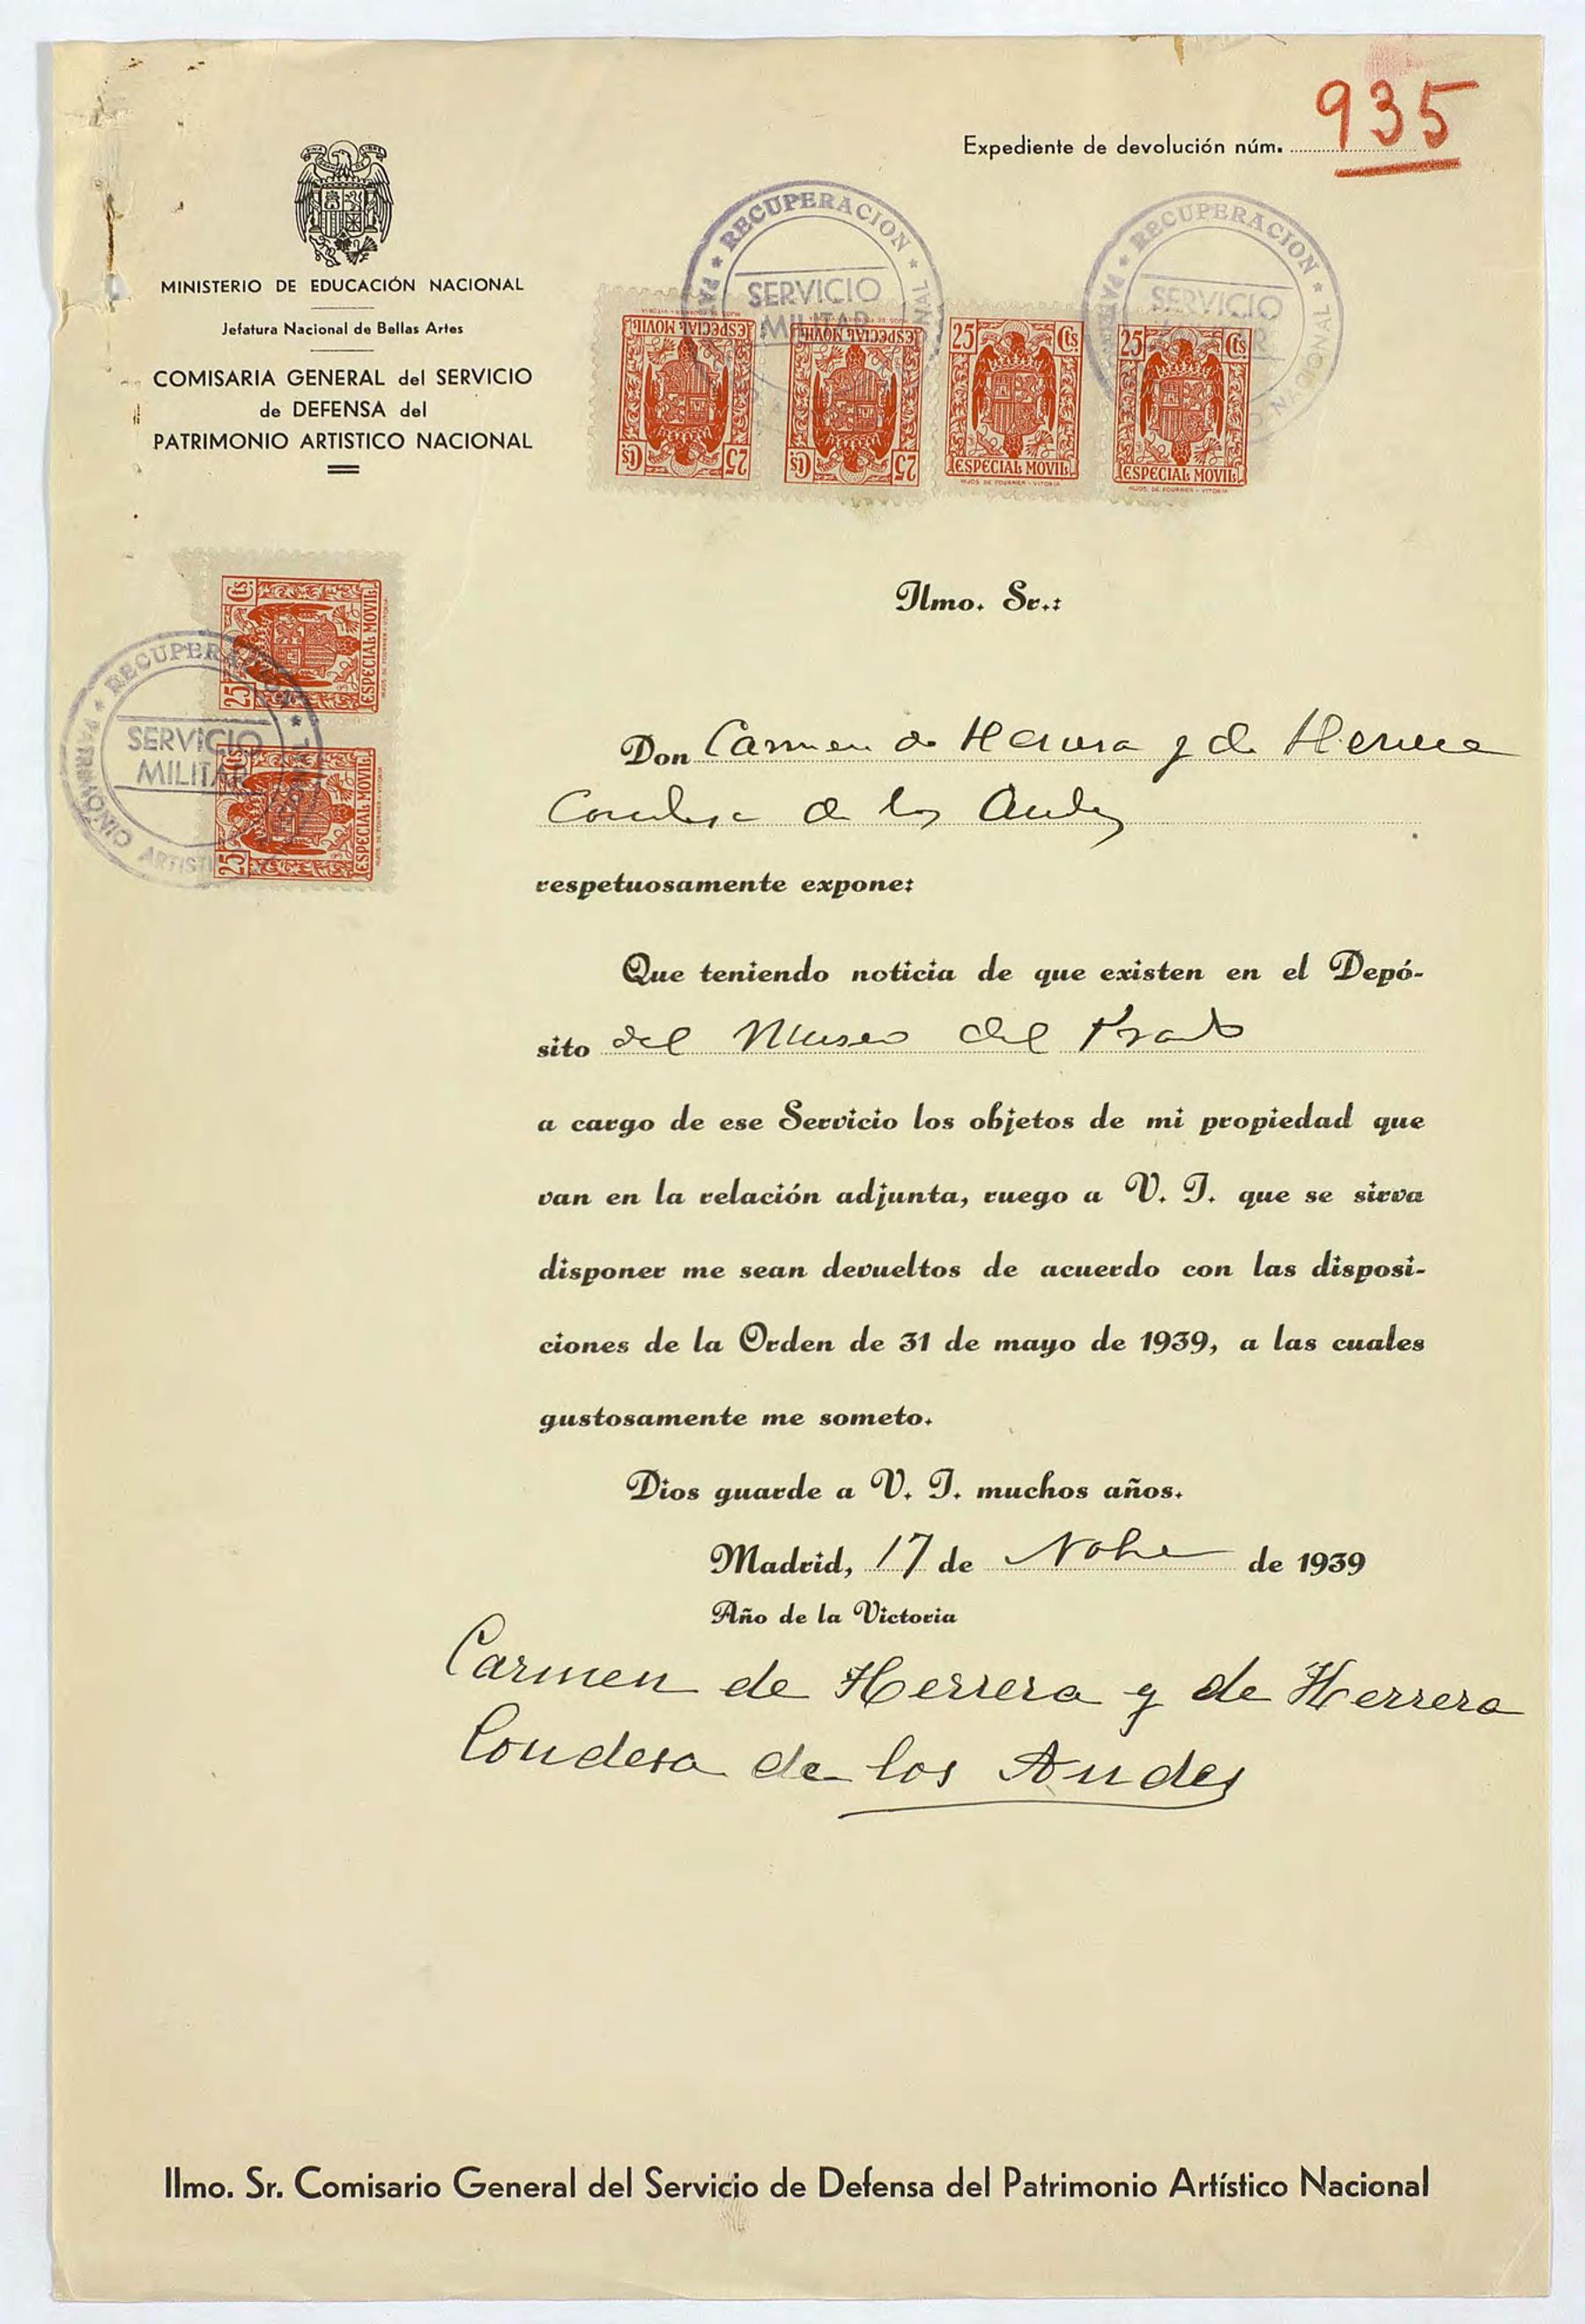 Expediente de devolución núm. 935
MINISTERIO DE EDUCACIÓN NACIONAL
Jefatura Nacional de Bellas Artes
COMISARIA GENERAL del SERVICIO
de DEFENSA del
PATRIMONIO ARTISTICO NACIONAL
RECUPERACION
SERVICIO
MILITAR
RECUPERACION
SERVICIO
NACIONAL
ESPECIAL MOVIL
25 Cts
ESPECIAL MOVIL
25 Cts
25 Cts.
ESPECIAL MOVIL
HIJOS DE FOURNIER - VITORIA
25 Cts
ESPECIAL MOVIL
HIJOS DE FOURNIER - VITORIA
25 Cts.
ESPECIAL MOVIL
HIJOS DE FOURNIER - VITORIA
25
ESPECIAL MOVIL
RECUPERACION
SERVICIO
MILITAR
PATRIMONIO ARTISTI
Ilmo. Sr.:
Don Carmen de Herrera y de Herrera
Condesa de los Andes
respetuosamente expone:
Que teniendo noticia de que existen en el Depó-
sito del Museo del Prado
a cargo de ese Servicio los objetos de mi propiedad que
van en la relación adjunta, ruego a V. I. que se sirva
disponer me sean devueltos de acuerdo con las disposi-
ciones de la Orden de 31 de mayo de 1939, a las cuales
gustosamente me someto.
Dios guarde a V. I. muchos años.
Madrid, 17 de Nobre de 1939
Año de la Victoria
Carmen de Herrera y de Herrera
Condesa de los Andes
Ilmo. Sr. Comisario General del Servicio de Defensa del Patrimonio Artístico Nacional